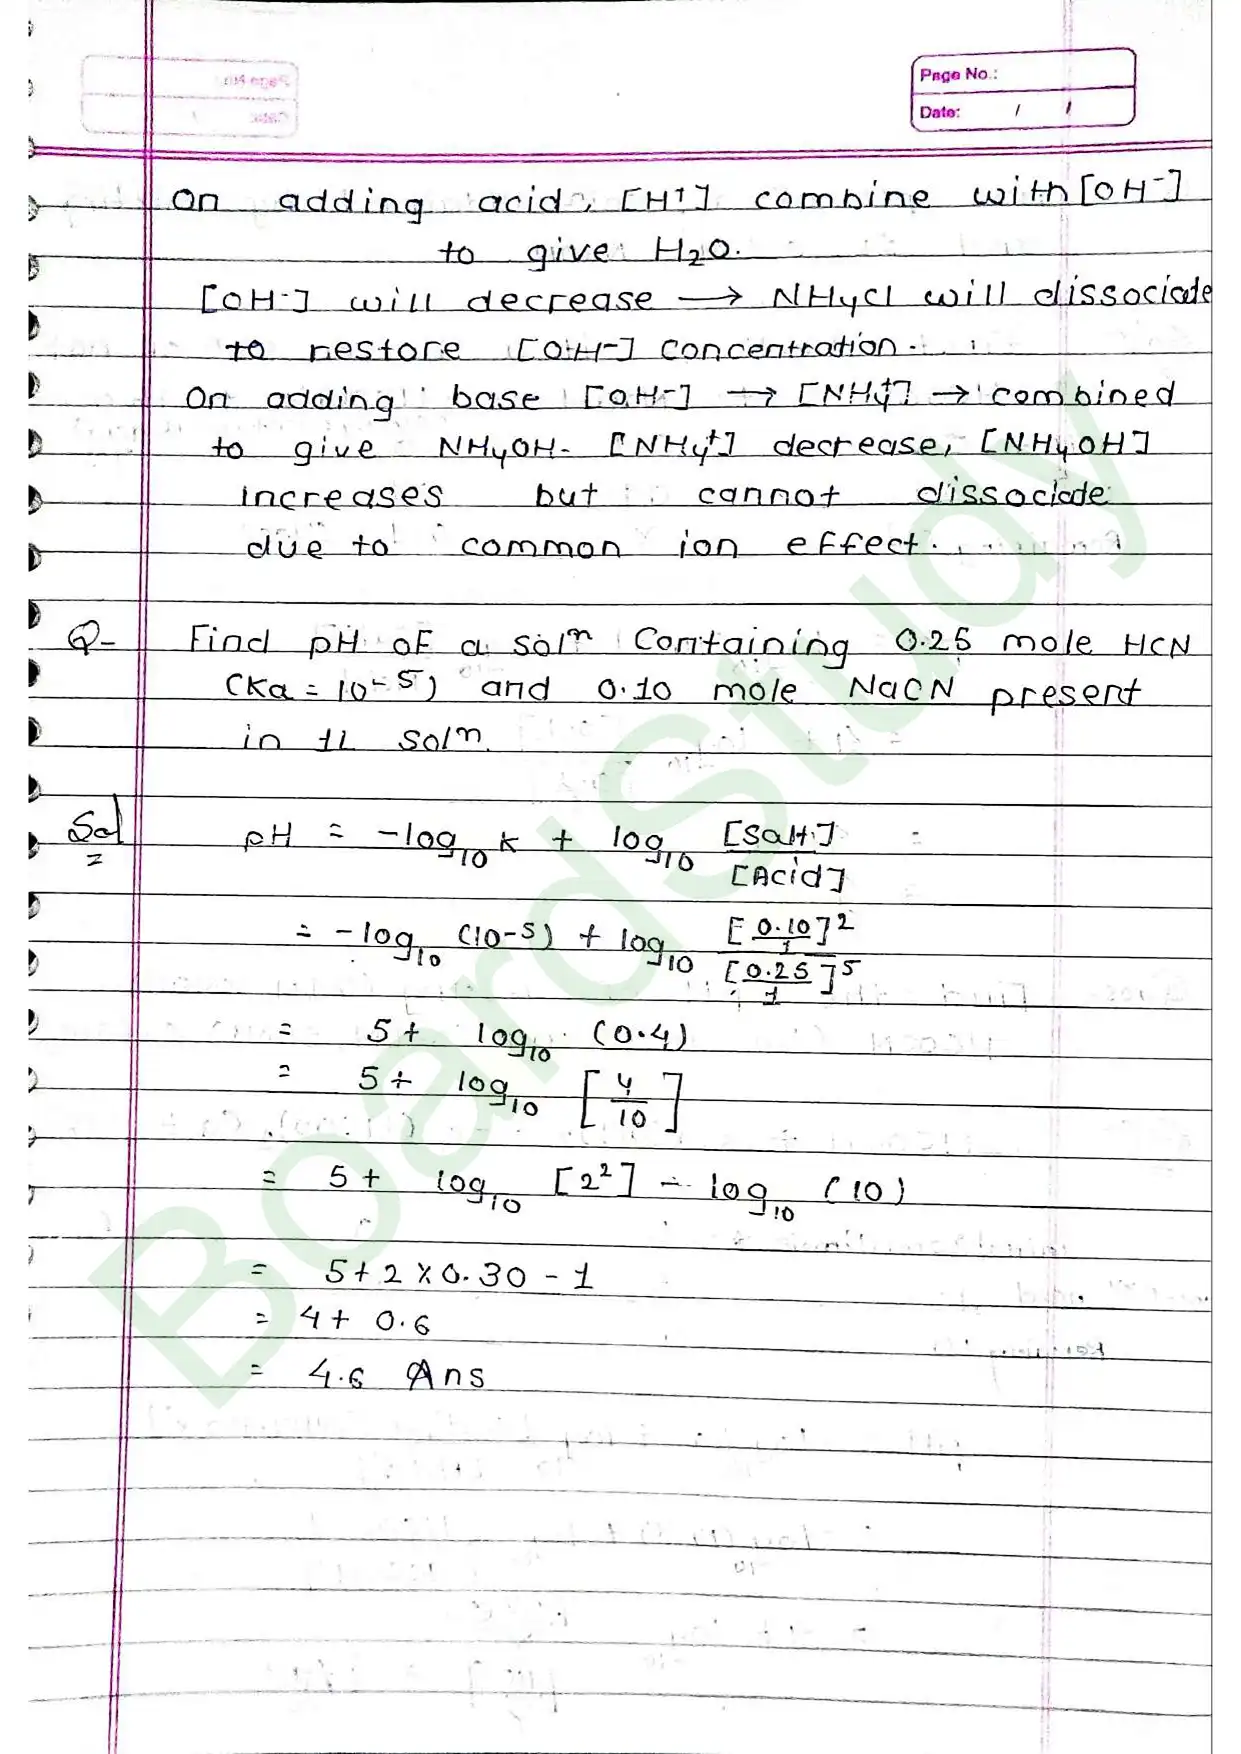 Page No.:
Date: / /
On adding acid, [H+] combine with [OH-]
to give H2O.
[OH-] will decrease → NH4Cl will dissociate
to restore [OH-] concentration.
On adding base [OH-] → [NH4+] → combined
to give NH4OH. [NH4+] decrease, [NH4OH]
increases but cannot dissociate
due to common ion effect.
Q- Find pH of a solⁿ containing 0.25 mole HCN
(Ka = 10⁻⁵) and 0.10 mole NaCN present
in 1L solⁿ.
Sol = pH = -log₁₀ K + log₁₀ [Salt]/[Acid]
= -log₁₀ (10⁻⁵) + log₁₀ [0.10/1]²/[0.25/1]⁵
= 5 + log₁₀ (0.4)
= 5 + log₁₀ [4/10]
= 5 + log₁₀ [2²] - log₁₀ (10)
= 5 + 2 × 0.30 - 1
= 4 + 0.6
= 4.6 Ans
BoardStudy